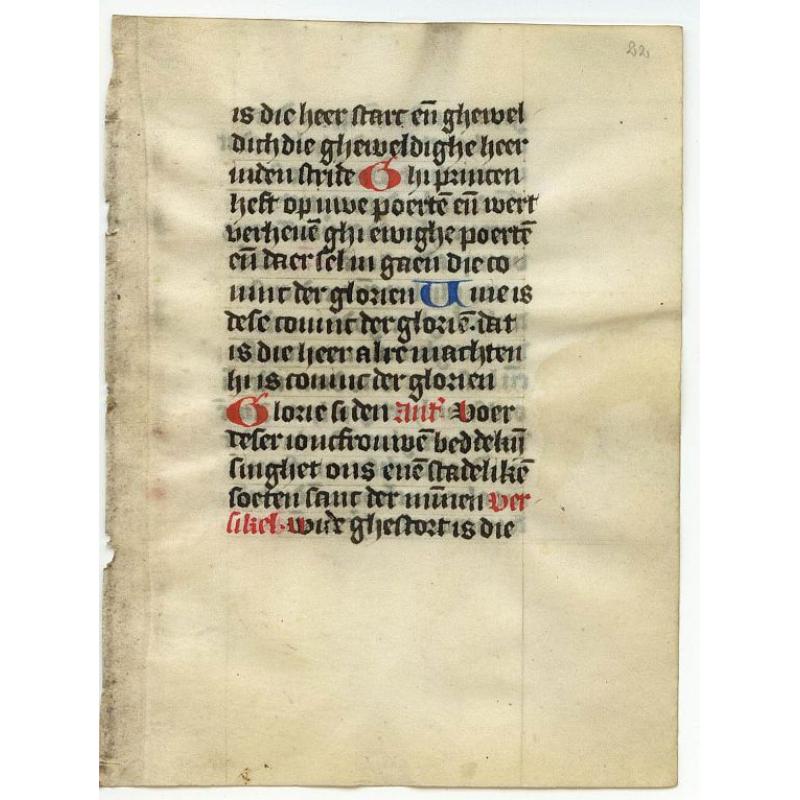 22
is die heer starc en̄ ghewel
dich die gheweldighe heer
inden stride Ghi princen
heft op uwe poertē en̄ wert
verheuē ghi ewighe poertē
en̄ daer sel in gaen die co
ninc der glorien Wie is
dese coninc der gloriē. dat
is die heer alre machten
hi is coninc der glorien
Glorie si den Ant' Voer
deser ioncfrouwē beddekijn
singhet ons euē stadelikē
soeten sanc der minnen ver
sikel. wtde ghestort is die